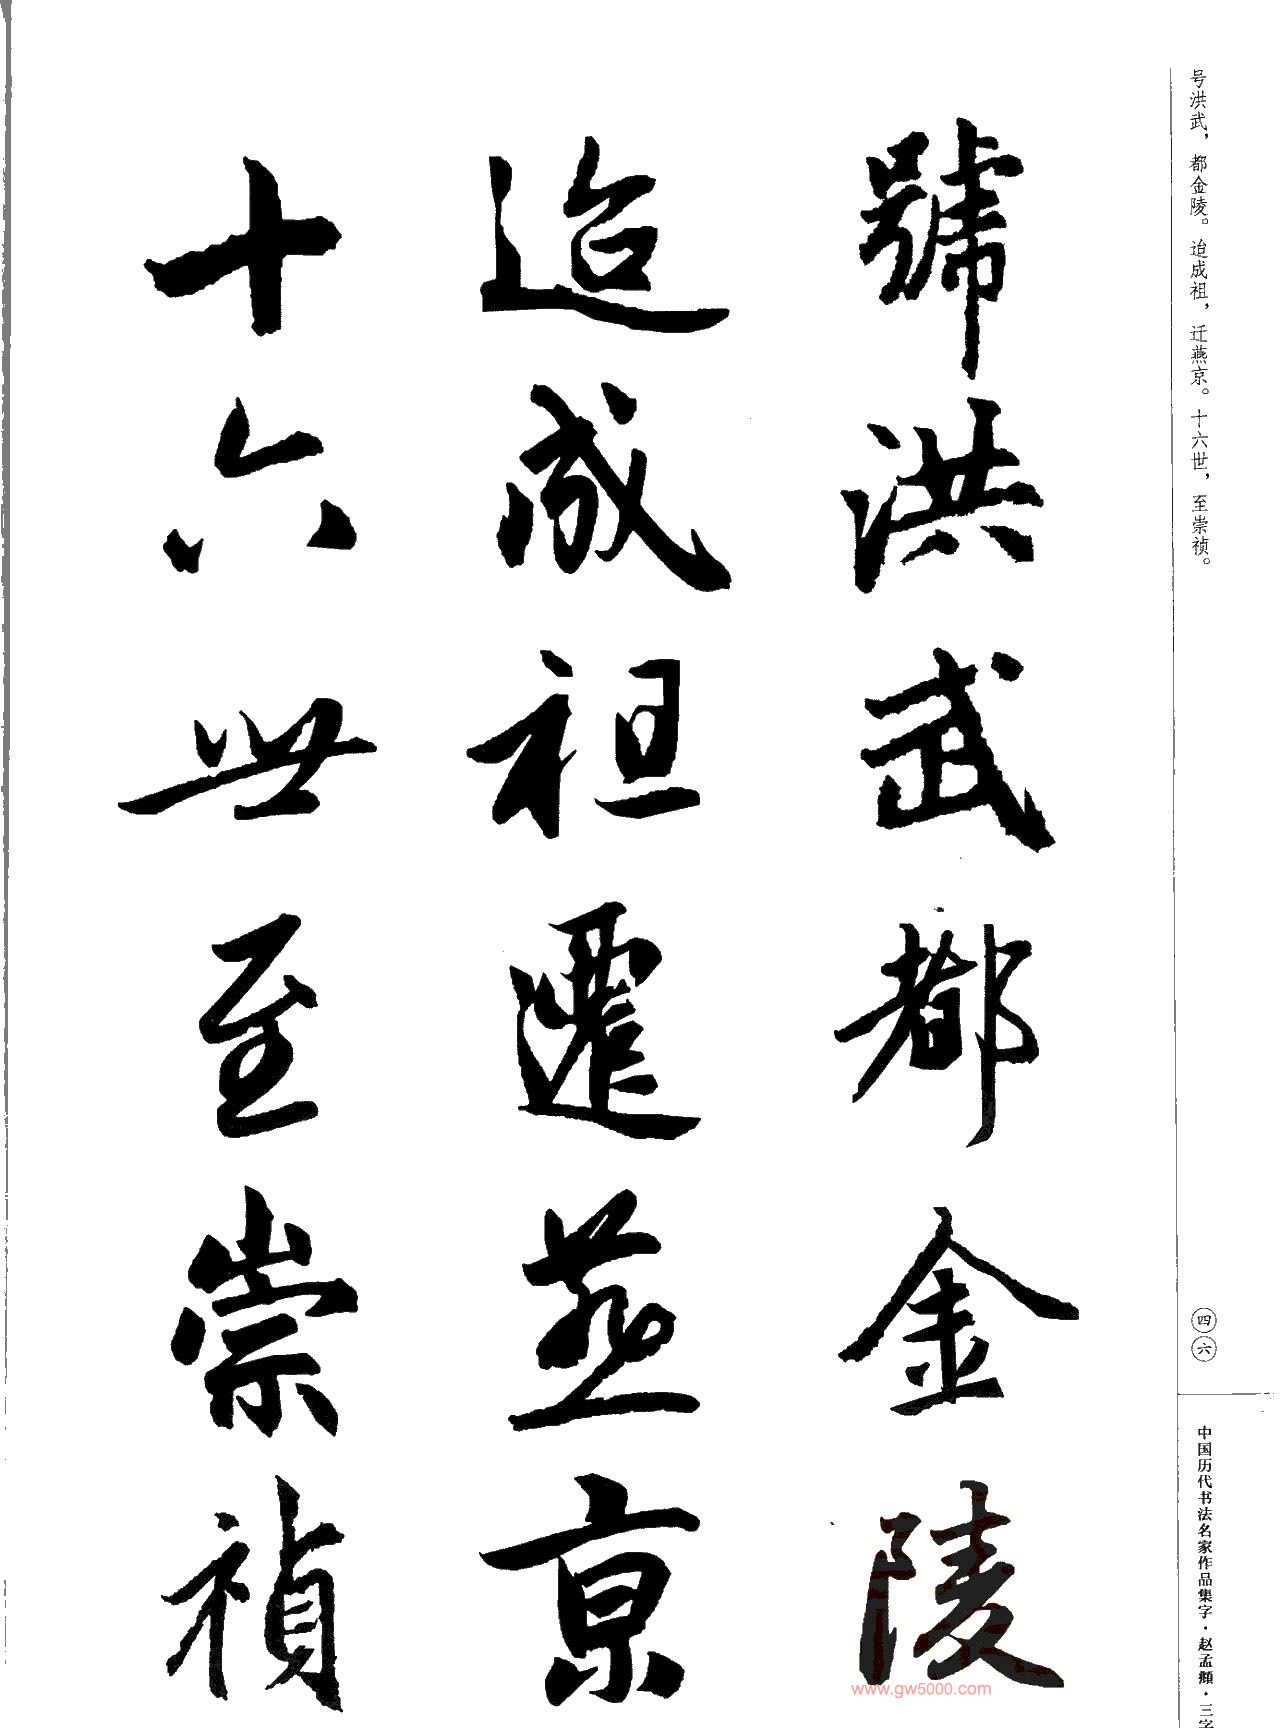 號洪武都金陵
迨成祖遷燕京
十六世至崇禎
号洪武，都金陵。迨成祖，迁燕京。十六世，至崇祯。
四六
中国历代书法名家作品集字·赵孟頫·三字
www.gw5000.com